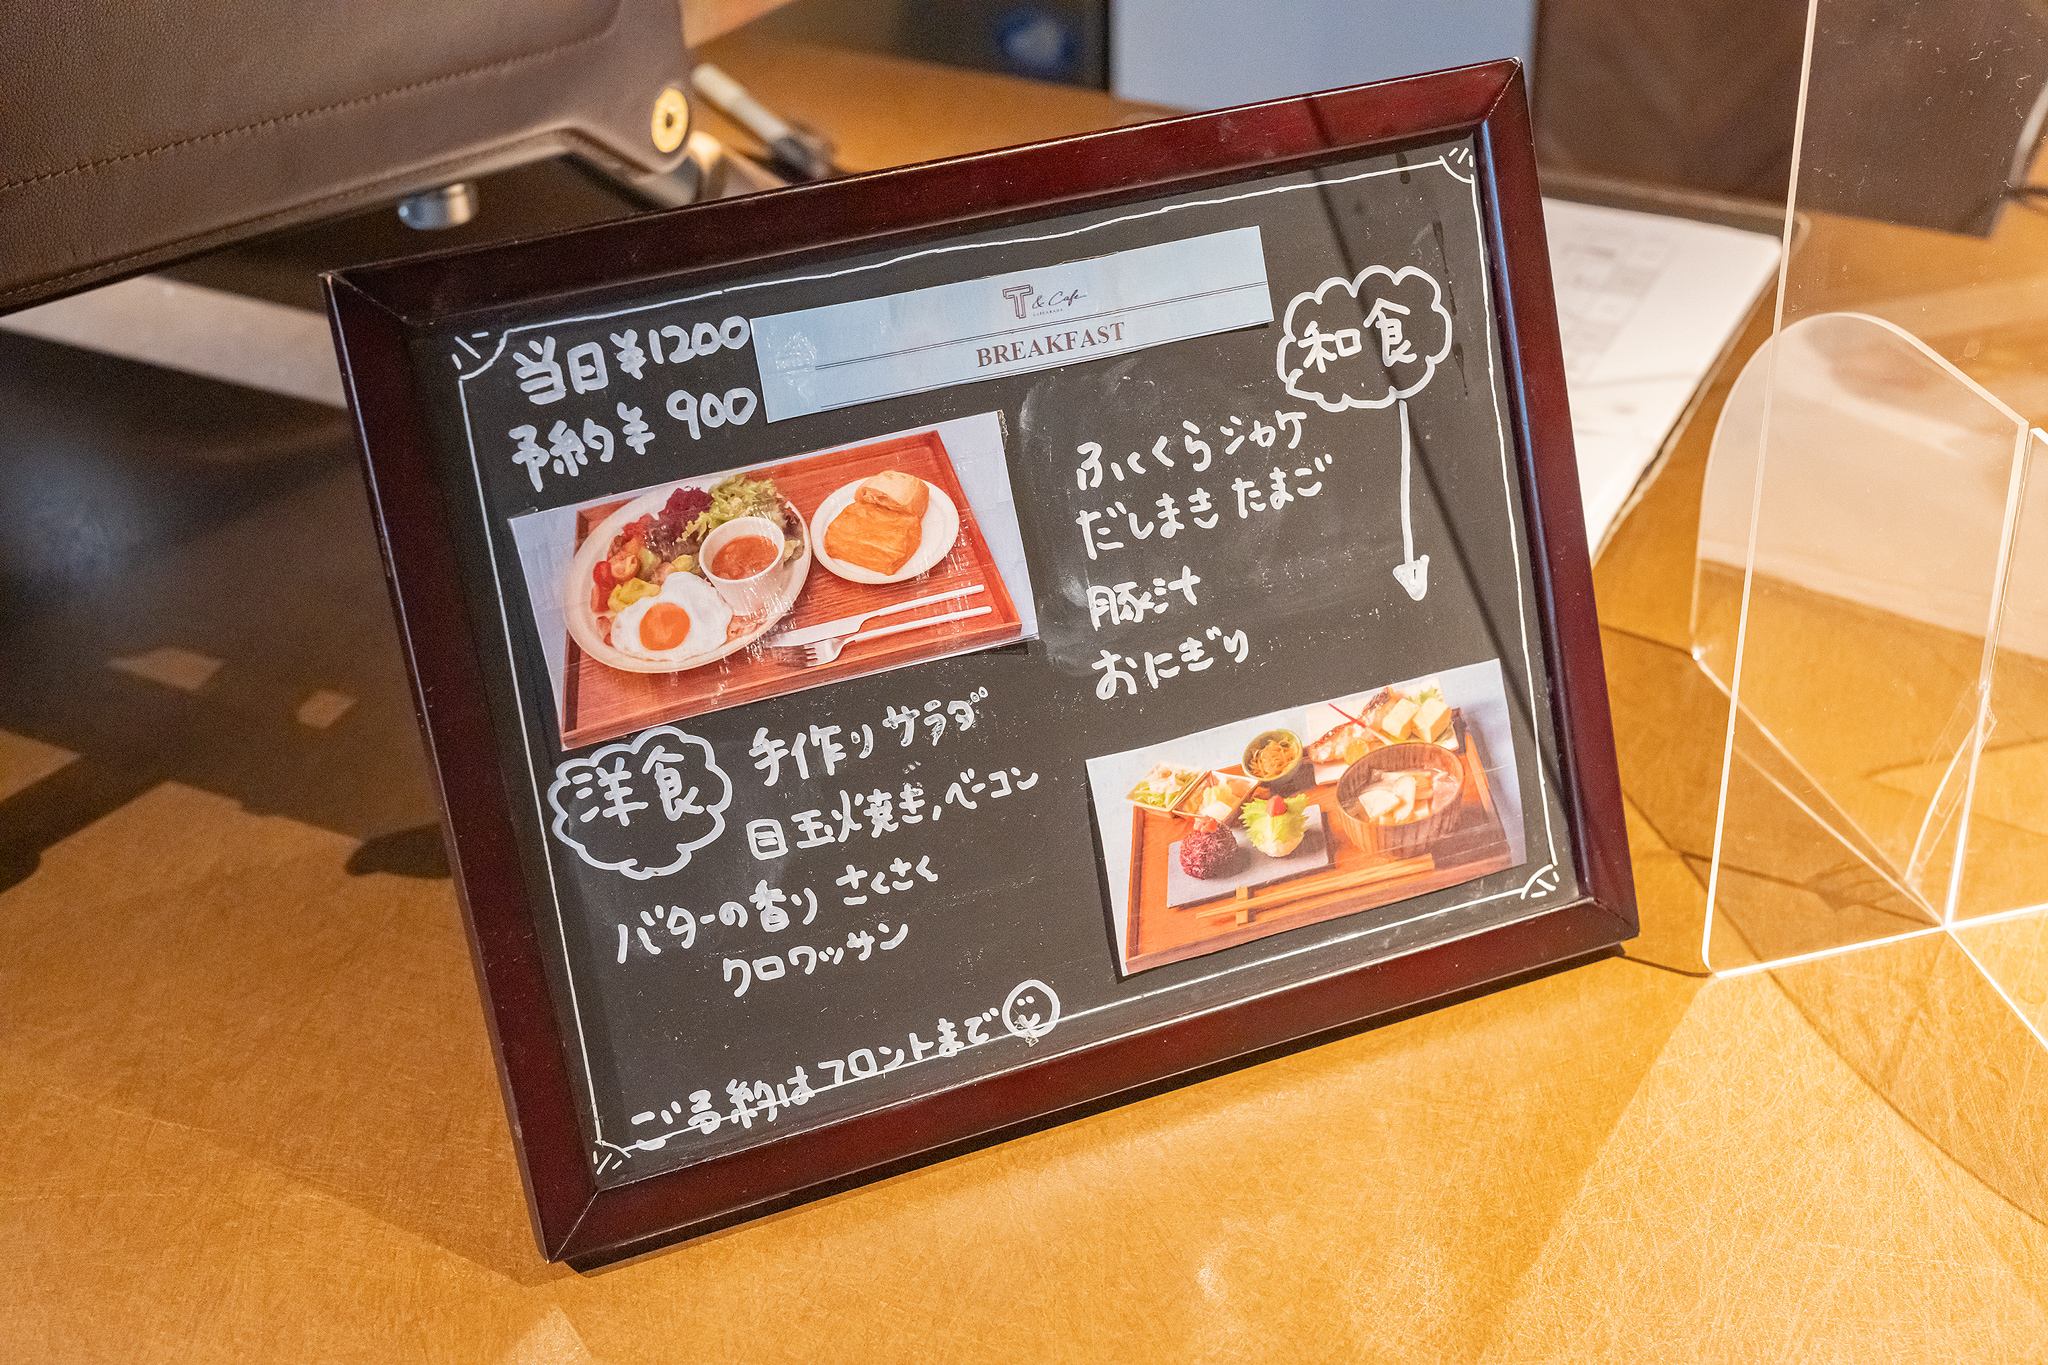 T & Cafe
BREAKFAST
当日¥1200
予約¥900
和食
ふっくらシャケ
だしまきたまご
豚汁
おにぎり
洋食
手作りサラダ
目玉焼き,ベーコン
バターの香り さくさく
クロワッサン
ご予約はフロントまで